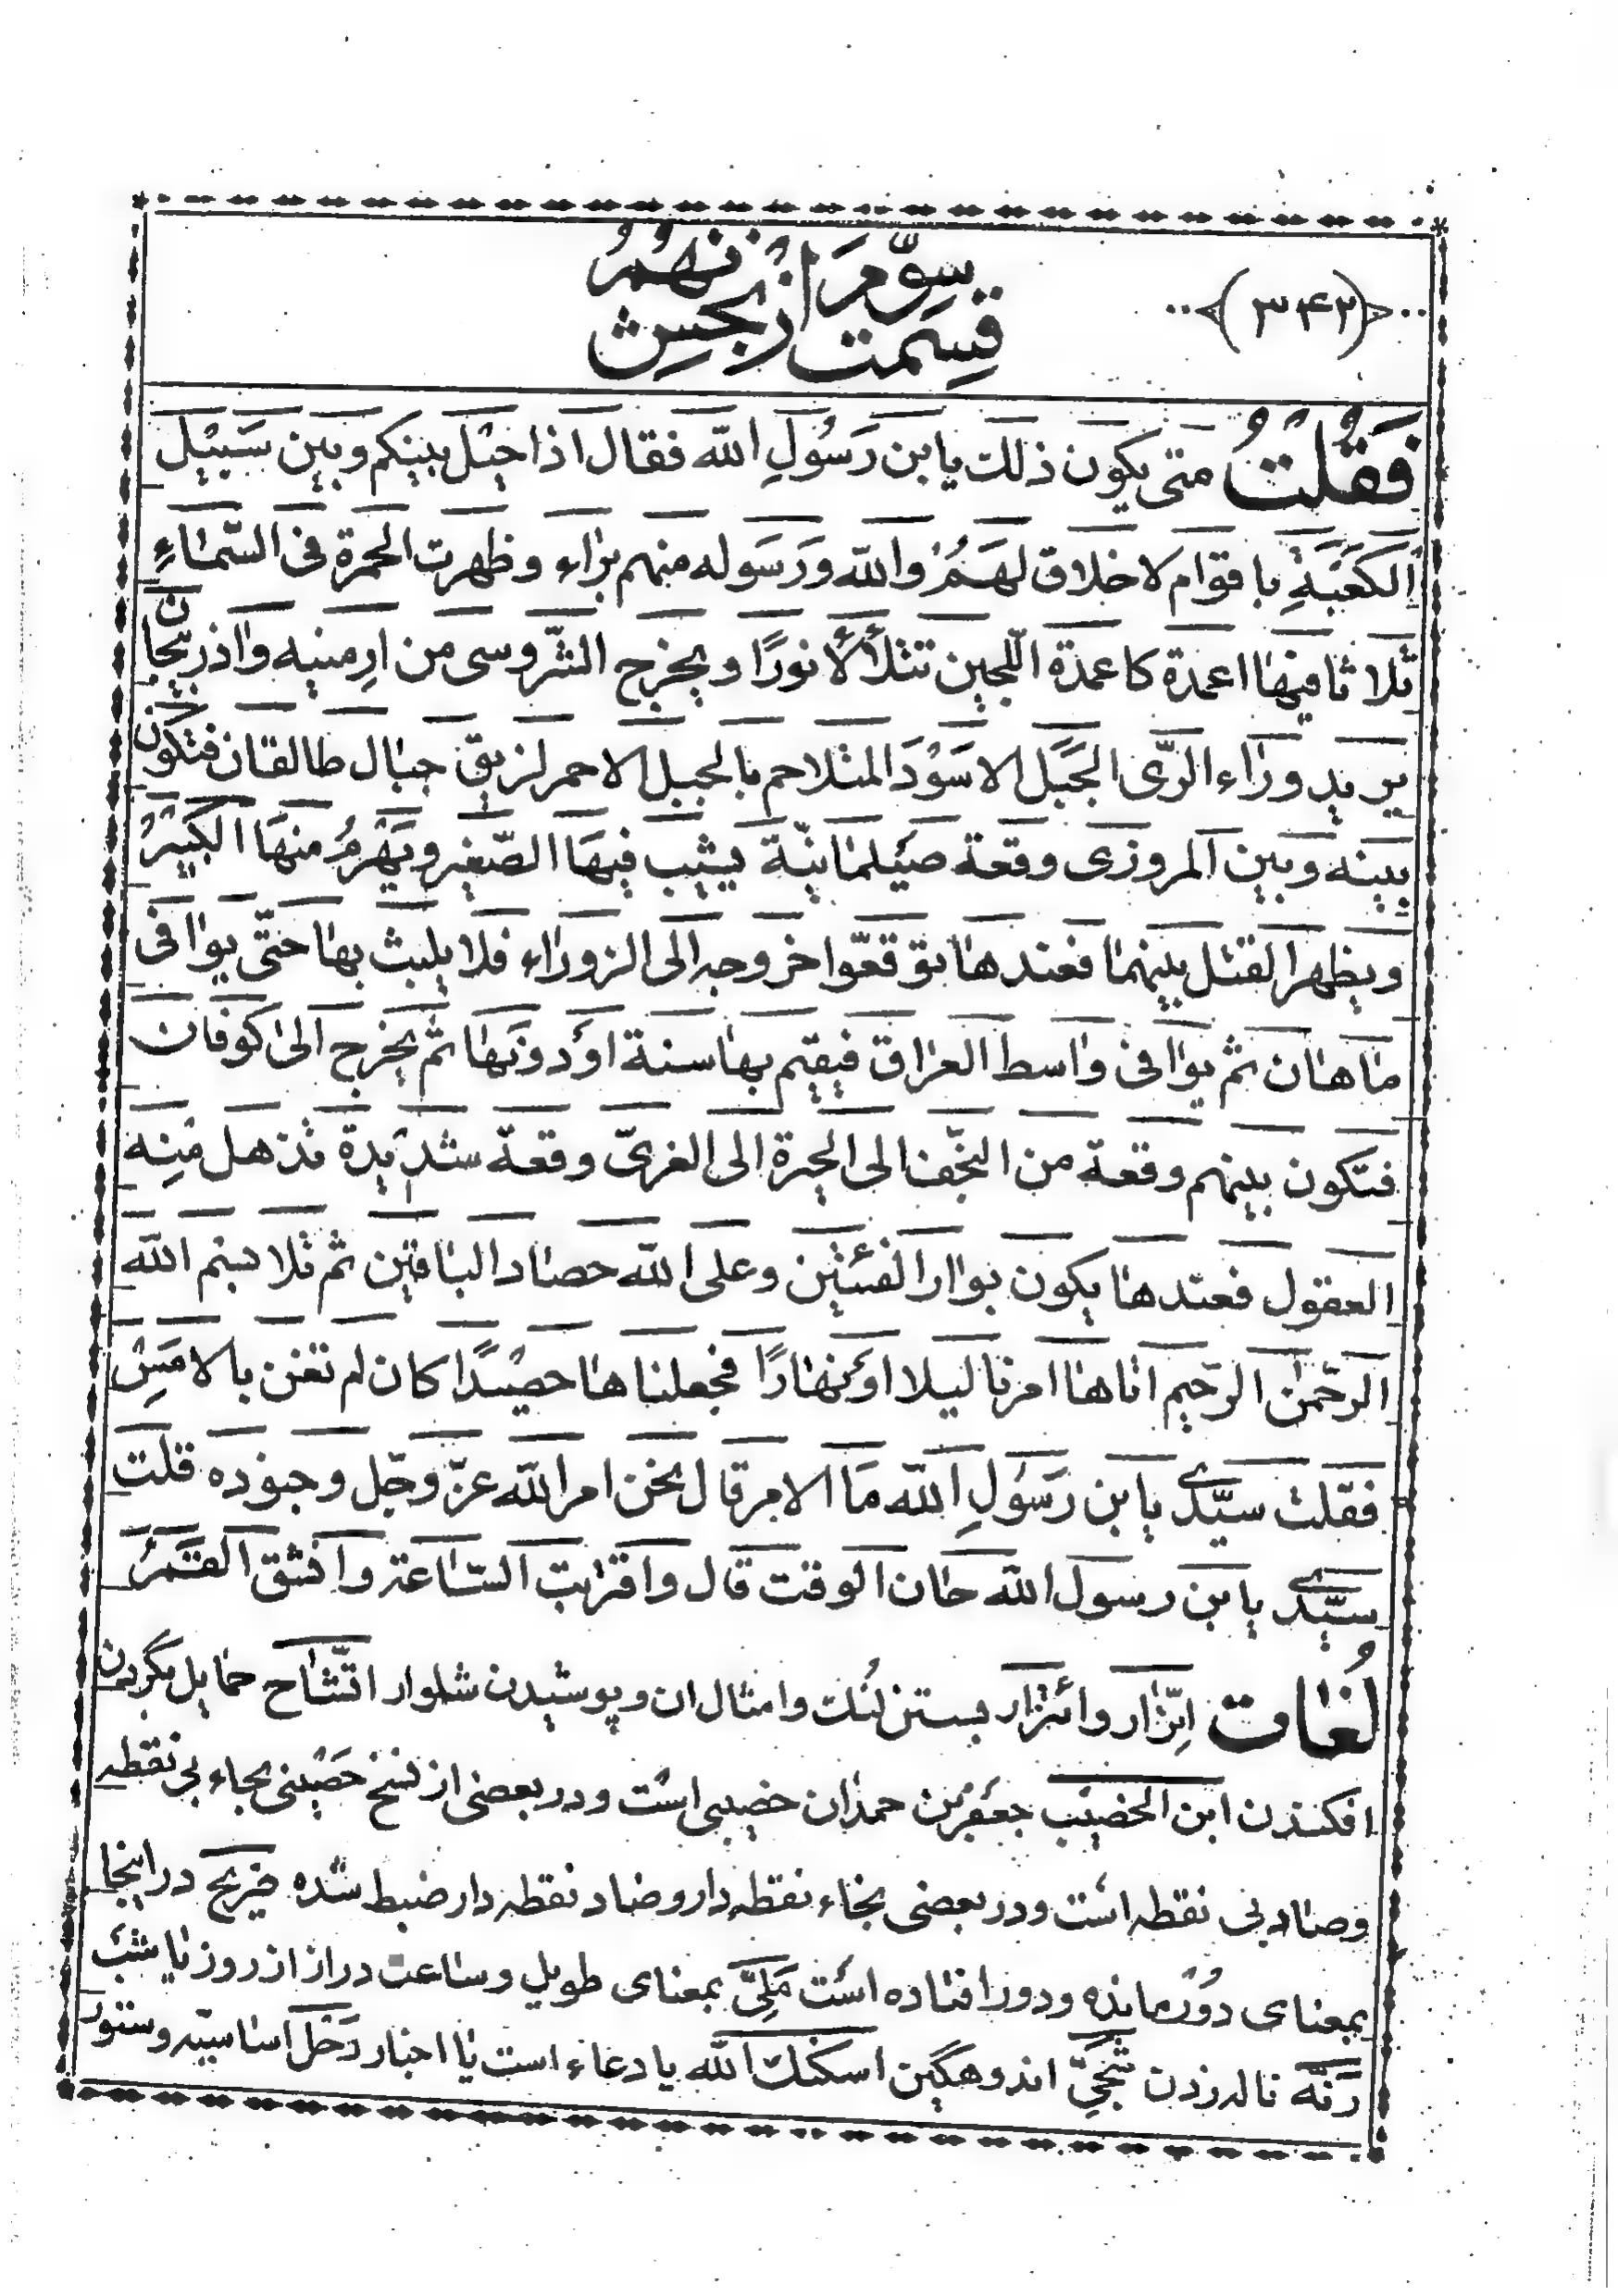 ﴿۳۴۲﴾
قسمت سوّم از بخش نهم
فَقُلْتُ متى يكون ذلك يابن رَسُولِ الله فقال اذا حيْل بينكم وبين سَبيْل
الكَعْبَةِ باقوام لاخلاق لهَمُ والله ورَسَوله منهم براء وظهرت الحمرة فى السّماءِ
ثلاثا فيها اعمدة كاعمدة اللّجين تتلألأ نورًا ويخرج الشّروسى من ارِمنيه واذربيجان
يريد وراء الرَّى الجَبَل الاسَوْدَ المتلاحم بالجبل الاحمر لزيق جبال طالقان فتكون
بينه وبين المروزى وقعة صَيْلمانيّة يشيب فيهَا الصّغير ويَهْرمُ منهَا الكَبيْرُ
ويظهر القتل بينهما فعندها توقعّوا خروجه الى الزوراء فلا يلبث بها حتّى يوافى
ماهان ثم يوافى واسط العراق فيقيم بها سنة اوَدونَها ثم يخرج الى كوفان
فتكون بينهم وقعة من النّجف الى الحيرة الى الغرىّ وقعة شديدة تذهل منِه
العقول فعندها يكون بوار الفئتين وعلى الله حصاد الباقين ثم تلا بسم الله
الرحمن الرحيم اتاها امرنا ليلا اونهارًا فجعلناها حصيْدًا كان لم تغن بالامَسِْ
فقلت سيّدى يابن رَسَولِ الله مَا الامر قال نحن امر الله عزّ وجّل وجنوده قلت
سيّدى يابن رسول الله حان الوقت قال واقتربت السّاعة وانشق القمَرُ
لُغات اِتّزار وائتزار بستن لنُك وامثال ان وپوشيدن شلوار اتّشاح حمايل بگردن
افكندن ابن الخضيَب جعَفربن حمدان خضيبى است ودر بعضى از نسخ حَصْينى بحاء بى نقطه
وصاد بى نقطه است ودر بعضى بخاء نقطه دار وضاد نقطه دار ضبط شده ضريح در اينجا
بمعناى دوُر مانده ودور افتاده است مَلِىّ بمعناى طويل وساعت دراز از روز يا شب
رَنّه ناله زدن شَجِىّ اندوهگين اسكنك الله يا دعاء است يا اخبار دَخَل اساسيّه وستور